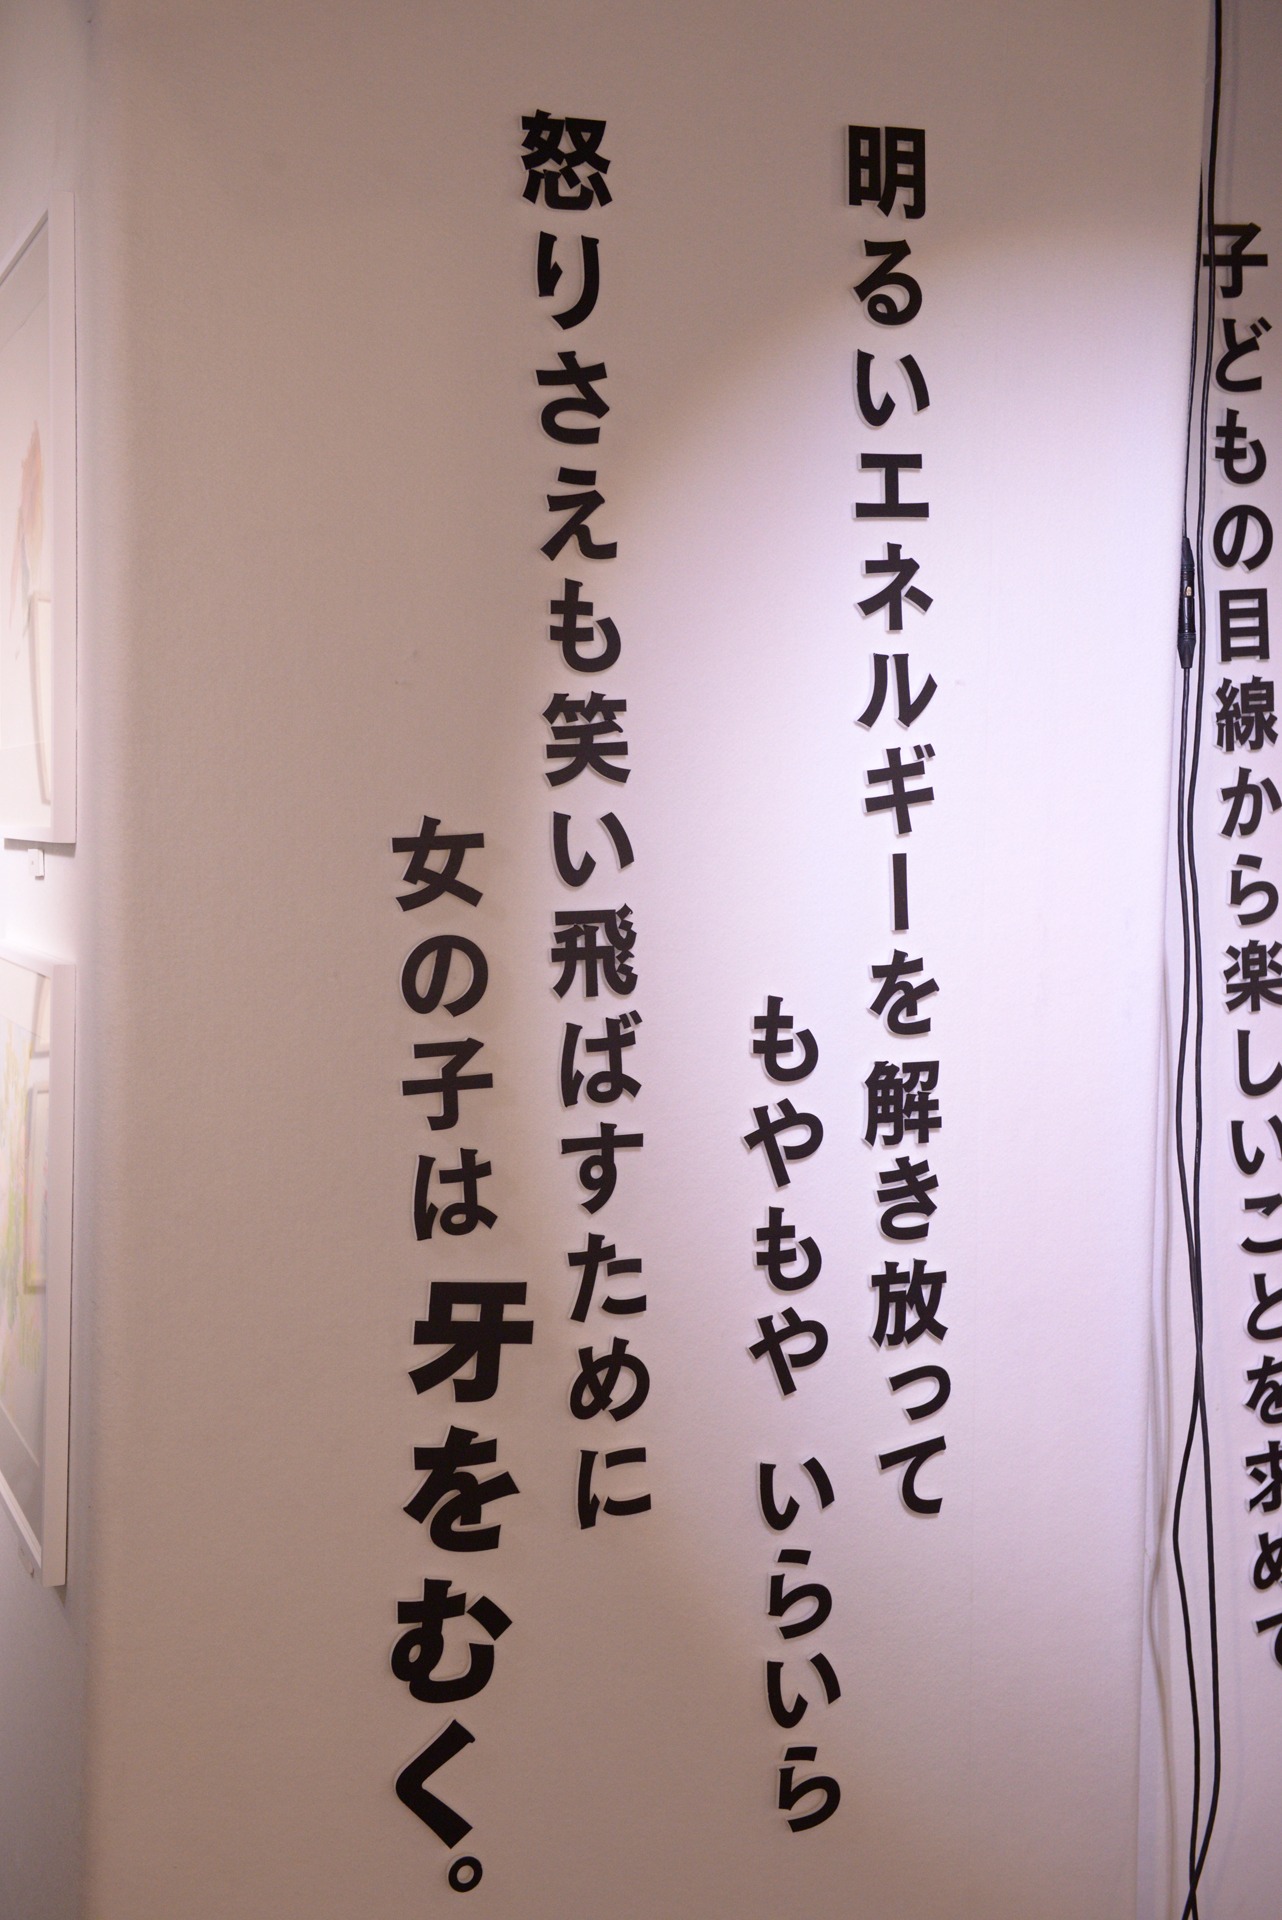 子どもの目線から楽しいことを求めて
明るいエネルギーを解き放って
もやもや いらいら
怒りさえも笑い飛ばすために
女の子は 牙をむく。